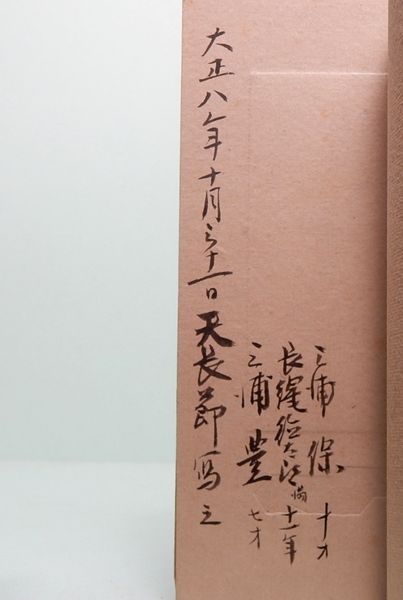 三浦 保 十才
長縄 満十一年
三浦 豊 七才
大正八年十月三十一日天長節写之